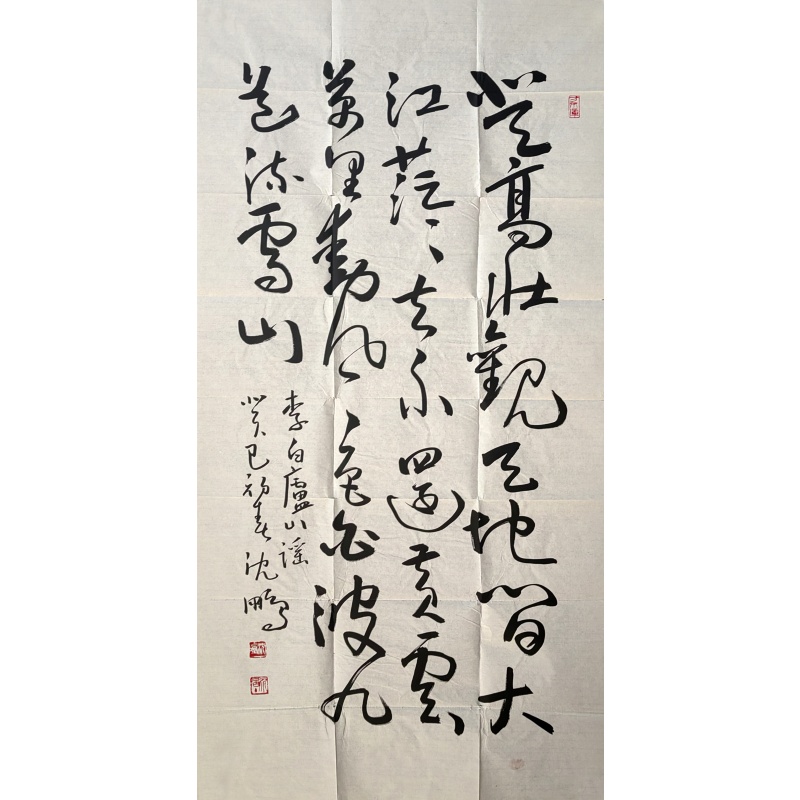 登高壯觀天地間大
江茫〻去不還黃雲
萬里動風色白波九
道流雪山
李白廬山謠
癸巳初春沈鵬